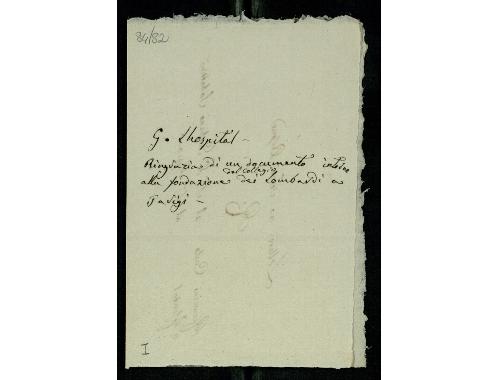 84/82
G. Lhospital -
Ringrazia di un documento intorno
del collegio
alla fondazione dei Lombardi a
Parigi -
I